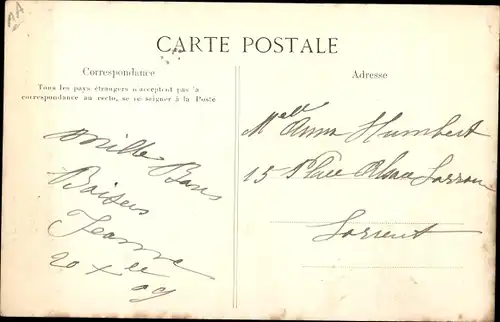 AA
CARTE POSTALE
Correspondance
Tous les pays étrangers n'acceptent pas la
correspondance au recto, se renseigner à la Poste
Mille Bons
Baisers
Jeanne
20 Xbre 09
Adresse
Melle Anna Humbert
15 Place Alsace Lorraine
Lorient